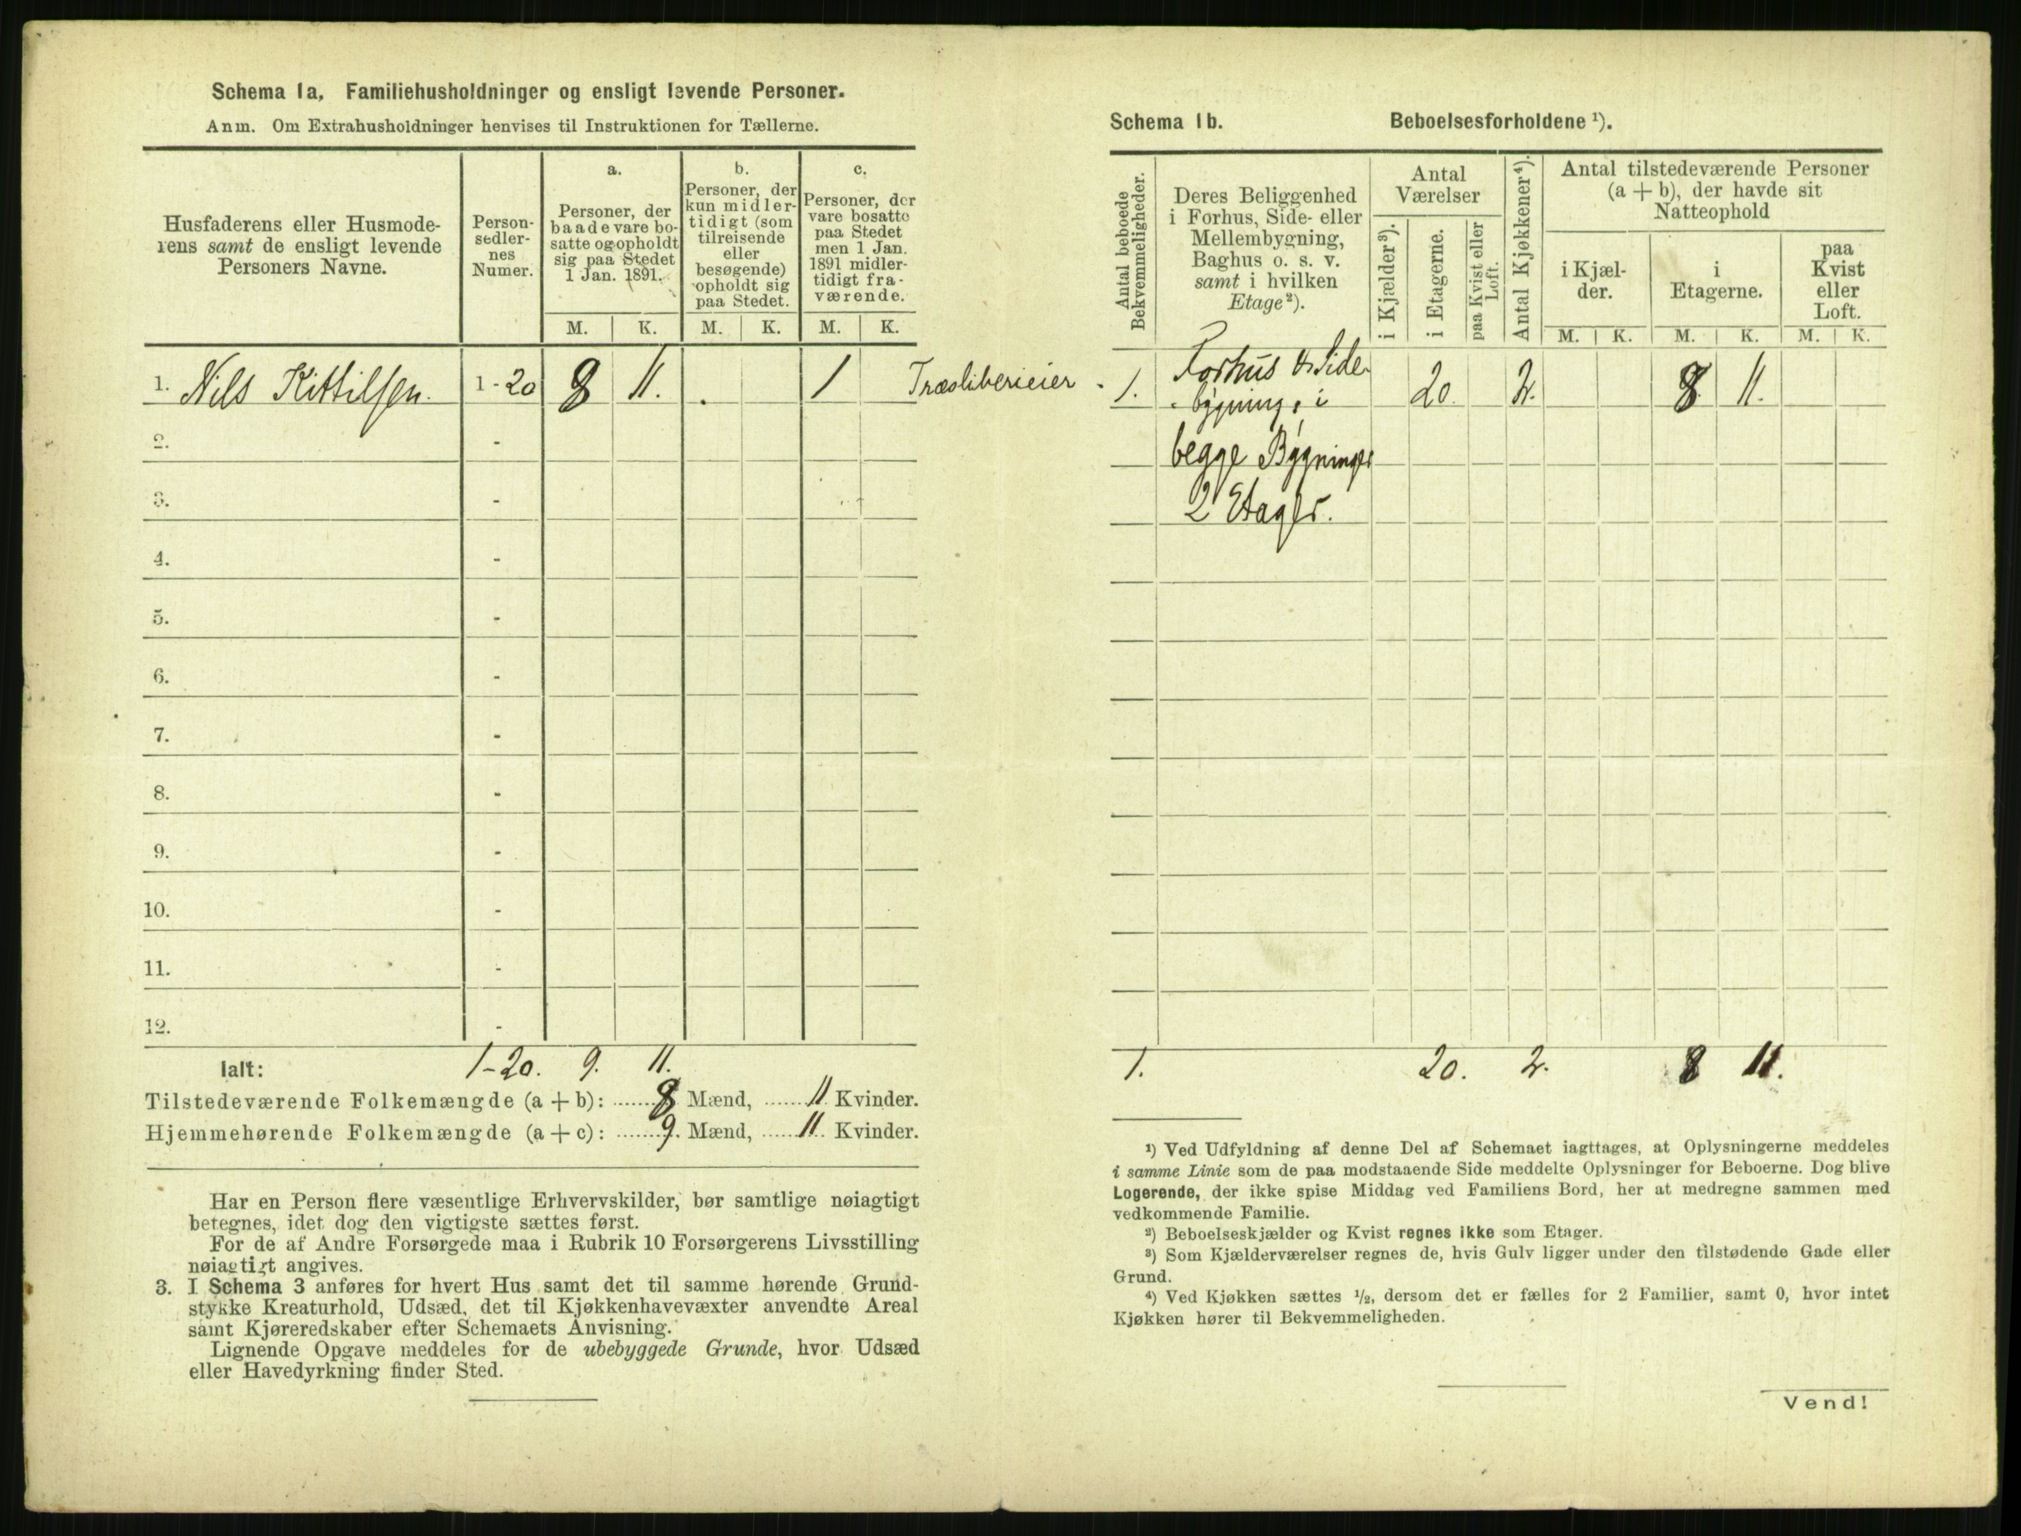 Schema 1a. Familiehusholdninger og ensligt levende Personer.
Anm. Om Extrahusholdninger henvises til Instruktionen for Tællerne.
Husfaderens eller Husmode-
rens samt de ensligt levende
Personers Navne.
Person-
sedler-
nes
Numer.
a.
Personer, der
baade vare bo-
satte og opholdt
sig paa Stedet
1 Jan. 1891.
b.
Personer, der
kun midler-
tidigt (som
tilreisende
eller
besøgende)
opholdt sig
paa Stedet.
c.
Personer, der
vare bosatte
paa Stedet
men 1 Jan.
1891 midler-
tidigt fra-
værende.
M. K. M. K. M. K.
1. Nils Kittilsen. 1 - 20 8 11. . 1
2. -
3. -
4. -
5. -
6. -
7. -
8. -
9. -
10. -
11. -
12. -
Ialt: 1-20. 9. 11.
Tilstedeværende Folkemængde (a + b): 8 Mænd, 11 Kvinder.
Hjemmehørende Folkemængde (a + c): 9. Mænd, 11. Kvinder.
Har en Person flere væsentlige Erhvervskilder, bør samtlige nøiagtigt
betegnes, idet dog den vigtigste sættes først.
For de af Andre Forsørgede maa i Rubrik 10 Forsørgerens Livsstilling
nøiagtigt angives.
3. I Schema 3 anføres for hvert Hus samt det til samme hørende Grund-
stykke Kreaturhold, Udsæd, det til Kjøkkenhavevæxter anvendte Areal
samt Kjøreredskaber efter Schemaets Anvisning.
Lignende Opgave meddeles for de ubebyggede Grunde, hvor Udsæd
eller Havedyrkning finder Sted.
Schema 1b. Beboelsesforholdene ¹).
Antal beboede
Bekvemmeligheder.
Deres Beliggenhed
i Forhus, Side- eller
Mellembygning,
Baghus o. s. v.
samt i hvilken
Etage²).
Antal
Værelser
i Kjælder³).
i Etagerne.
paa Kvist eller
Loft.
Antal Kjøkkener⁴).
Antal tilstedeværende Personer
(a + b), der havde sit
Natteophold
i Kjæl-
der.
i
Etagerne.
paa
Kvist
eller
Loft.
M. K. M. K. M. K.
1. Forhus & Side-
bygning, i 20. 2. 8 11.
begge Bygninger
2 Etager.
1. 20. 2. 8 11.
¹) Ved Udfyldning af denne Del af Schemaet iagttages, at Oplysningerne meddeles
i samme Linie som de paa modstaaende Side meddelte Oplysninger for Beboerne. Dog blive
Logerende, der ikke spise Middag ved Familiens Bord, her at medregne sammen med
vedkommende Familie.
²) Beboelseskjælder og Kvist regnes ikke som Etager.
³) Som Kjælderværelser regnes de, hvis Gulv ligger under den tilstødende Gade eller
Grund.
⁴) Ved Kjøkken sættes ½, dersom det er fælles for 2 Familier, samt 0, hvor intet
Kjøkken hører til Bekvemmeligheden.
Vend!